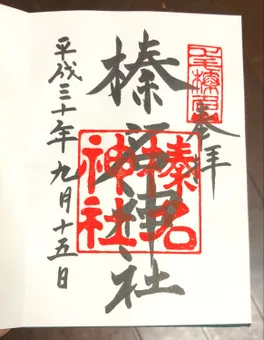 奉拝
榛名神社
平成三十年九月十五日
榛名神社